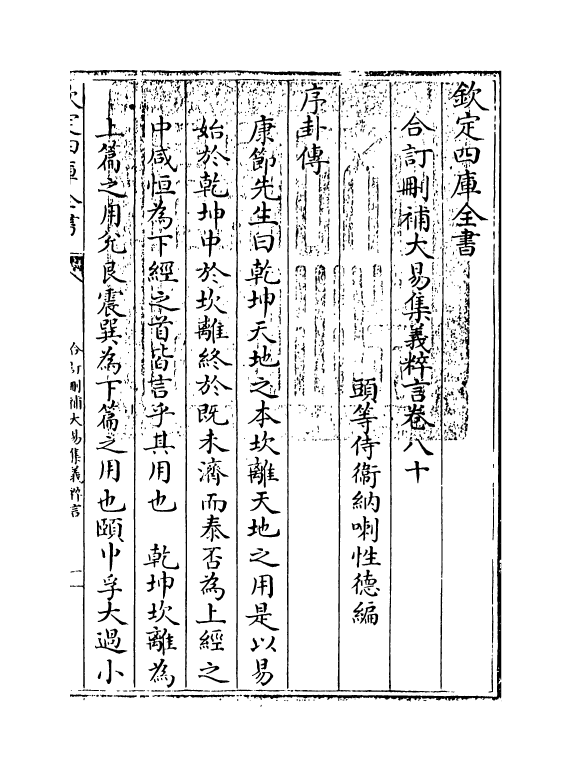 欽定四庫全書
合訂刪補大易集義粹言卷八十
頭等侍衛納喇性德編
序卦傳
康節先生曰乾坤天地之本坎離天地之用是以易
始於乾坤中於坎離終於既未濟而泰否為上經之
中咸恒為下經之首皆言乎其用也　乾坤坎離為
上篇之用兌艮震巽為下篇之用也頤中孚大過小
欽定四庫全書
合訂刪補大易集義粹言
一